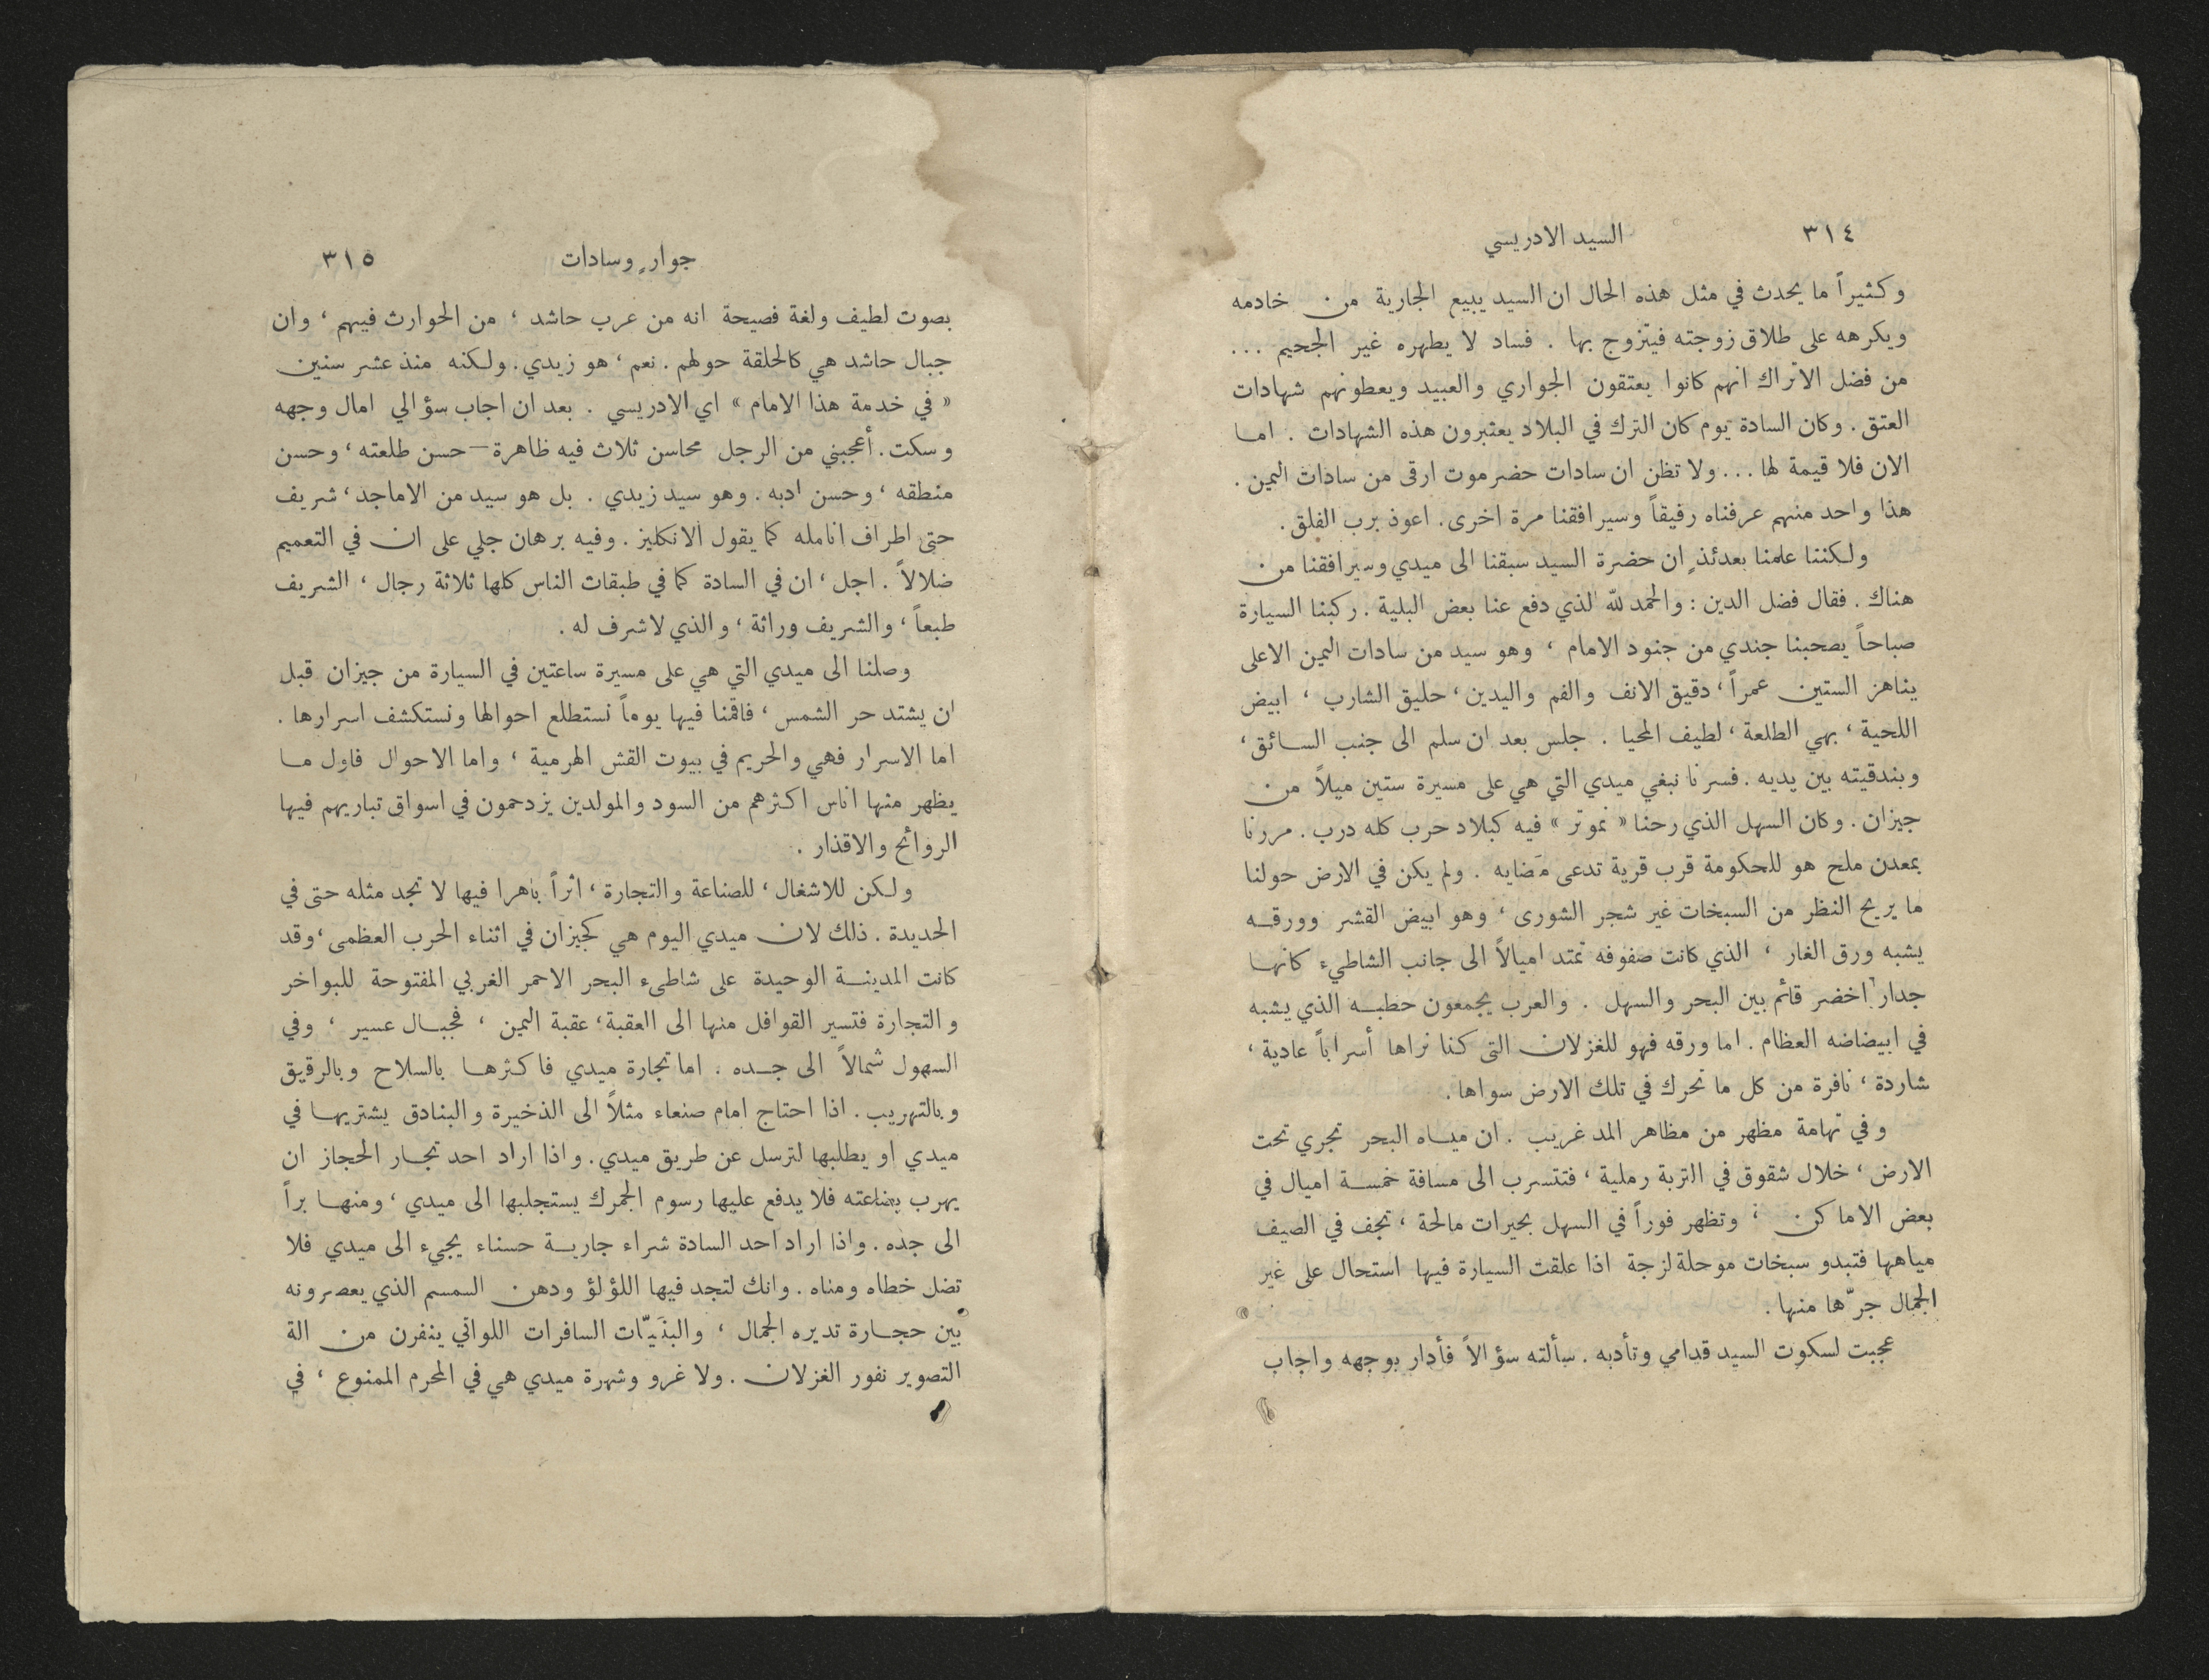 ٣١٤ السيد الادريسي
وكثيراً ما يحدث في مثل هذه الحال ان السيد يبيع الجارية من خادمه
ويكرهه على طلاق زوجته فيتزوج بها . فساد لا يطهره غير الجحيم ...
من فضل الاتراك انهم كانوا يعتقون الجواري والعبيد ويعطونهم شهادات
العتق . وكان السادة يوم كان الترك في البلاد يعتبرون هذه الشهادات . اما
الان فلا قيمة لها ... ولا تظن ان سادات حضرموت ارقى من سادات اليمن .
هذا واحد منهم عرفناه رفيقاً وسيرافقنا مرة اخرى . اعوذ برب الفلق .
ولكننا علمنا بعدئذٍ ان حضرة السيد سبقنا الى ميدي وسيرافقنا من
هناك . فقال فضل الدين : والحمد لله الذي دفع عنا بعض البلية . ركبنا السيارة
صباحاً يصحبنا جندي من جنود الامام ، وهو سيد من سادات اليمن الاعلى
يناهز الستين عمراً ، دقيق الانف والفم واليدين ، حليق الشارب ، ابيض
اللحية ، بهي الطلعة ، لطيف المحيا . جلس بعد ان سلم الى جنب السائق ،
وبندقيته بين يديه . فسرنا نبغي ميدي التي هي على مسيرة ستين ميلاً من
جيزان . وكان السهل الذي رحنا « نموتر » فيه كبلاد حرب كله درب . مررنا
بمعدن ملح هو للحكومة قرب قرية تدعى مَضايه . ولم يكن في الارض حولنا
ما يريح النظر من السبخات غير شجر الشورى ، وهو ابيض القشر وورقه
يشبه ورق الغار ، الذي كانت صفوفه تمتد اميالاً الى جانب الشاطيء كانها
جدار اخضر قائم بين البحر والسهل . والعرب يجمعون حطبه الذي يشبه
في ابيضاضه العظام . اما ورقه فهو للغزلان التى كنا نراها أسراباً عادية ،
شاردة ، نافرة من كل ما تحرك في تلك الارض سواها .
وفي تهامة مظهر من مظاهر المد غريب . ان مياه البحر تجري تحت
الارض ، خلال شقوق في التربة رملية ، فتتسرب الى مسافة خمسة اميال في
بعض الاماكن ، وتظهر فوراً في السهل بحيرات مالحة ، تجف في الصيف
مياهها فتبدو سبخات موحلة لزجة اذا علقت السيارة فيها استحال على غير
الجمال جرّها منها .
عجبت لسكوت السيد قدامي وتأدبه . سألته سؤالاً فأدار بوجهه واجاب
جوارٍ وسادات ٣١٥
بصوت لطيف ولغة فصيحة انه من عرب حاشد ، من الحوارث فيهم ، وان
جبال حاشد هي كالحلقة حولهم . نعم ، هو زيدي . ولكنه منذ عشر سنين
« في خدمة هذا الامام » اي الادريسي . بعد ان اجاب سؤالي امال وجهه
وسكت . أعجبني من الرجل محاسن ثلاث فيه ظاهرة — حسن طلعته ، وحسن
منطقه ، وحسن ادبه . وهو سيد زيدي . بل هو سيد من الاماجد ، شريف
حتى اطراف انامله كما يقول الانكليز . وفيه برهان جلي على ان في التعميم
ضلالاً . اجل ، ان في السادة كما في طبقات الناس كلها ثلاثة رجال ، الشريف
طبعاً ، والشريف وراثة ، والذي لا شرف له .
وصلنا الى ميدي التي هي على مسيرة ساعتين في السيارة من جيزان قبل
ان يشتد حر الشمس ، فاقمنا فيها يوماً نستطلع احوالها ونستكشف اسرارها .
اما الاسرار فهي والحريم في بيوت القش الهرمية ، واما الاحوال فاول ما
يظهر منها اناس اكثرهم من السود والمولدين يزدحمون في اسواق تباريهم فيها
الروائح والاقذار .
ولكن للاشغال ، للصناعة والتجارة ، اثراً باهرا فيها لا تجد مثله حتى في
الحديدة . ذلك لان ميدي اليوم هي كجيزان في اثناء الحرب العظمى ، وقد
كانت المدينة الوحيدة على شاطىء البحر الاحمر الغربي المفتوحة للبواخر
والتجارة فتسير القوافل منها الى العقبة ، عقبة اليمن ، فجبال عسير ، وفي
السهول شمالاً الى جده . اما تجارة ميدي فاكثرها بالسلاح وبالرقيق
وبالتهريب . اذا احتاج امام صنعاء مثلاً الى الذخيرة والبنادق يشتريها في
ميدي او يطلبها لترسل عن طريق ميدي . واذا اراد احد تجار الحجاز ان
يهرب بضاعته فلا يدفع عليها رسوم الجمرك يستجلبها الى ميدي ، ومنها براً
الى جده . واذا اراد احد السادة شراء جارية حسناء يجيء الى ميدي فلا
تضل خطاه ومناه . وانك لتجد فيها اللؤلؤ ودهن السمسم الذي يعصرونه
بين حجارة تديره الجمال ، والبنَيّات السافرات اللواتي ينفرن من الة
التصوير نفور الغزلان . ولا غرو وشهرة ميدي هي في المحرم الممنوع ، في